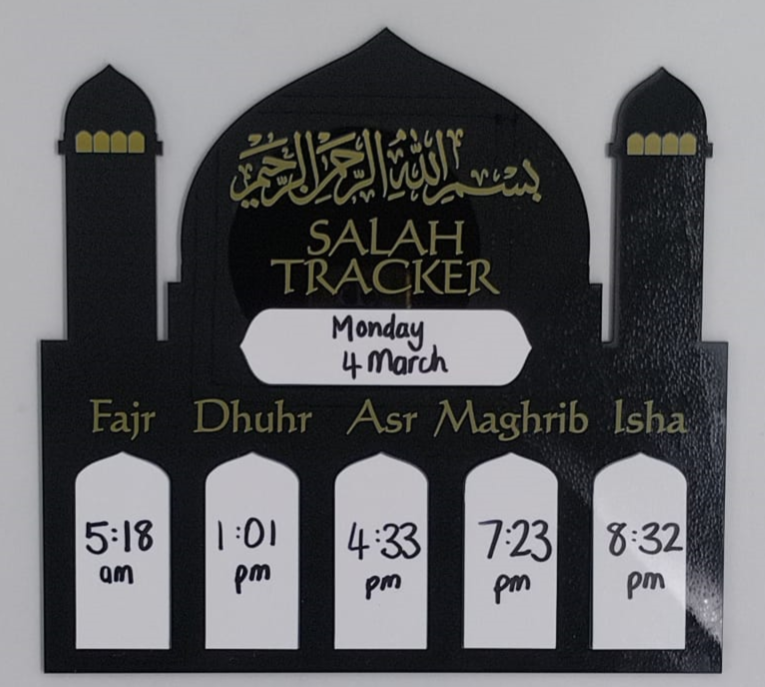 بسم الله الرحمن الرحيم
SALAH
TRACKER
Monday
4 March
Fajr Dhuhr Asr Maghrib Isha
5:18 1:01 4:33 7:23 8:32
am pm pm pm pm